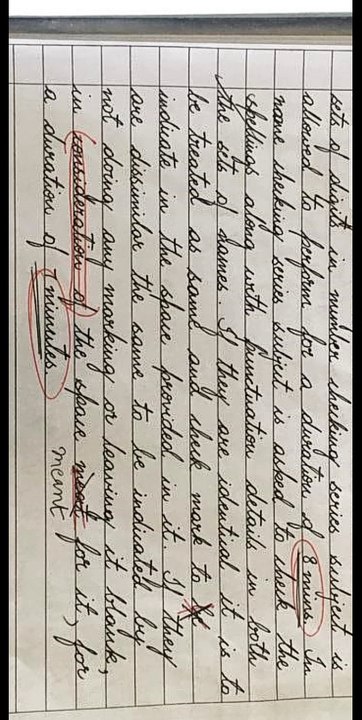 sets of digits in number checking series subject is
allowed to perform for a duration of 8 mins. In
name checking series subject is asked to check the
spellings along with punctuation details in both
the sets of names. If they are identical it is to
be treated as same and check mark to be
indicate in the space provided in it. If they
are dissimilar the same to be indicated by
not doing any marking or leaving it blank,
in consideration of the space meant for it, for
meant
a duration of 7 minutes.